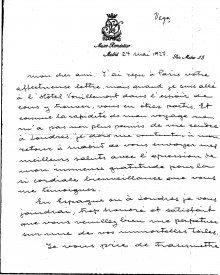 Vega
Madrid 24 mai 1927.
Mon cher ami. J'ai reçu à Paris votre
affectueuse lettre mais quand je suis allé
à l'Hôtel Vouillemont dans l'espoir de
vous y trouver, vous en étiez parti. Et
comme la rapidité de mon voyage ne
m'a pas non plus permis de me rendre
à Londres, je dois me contenter à mon
retour à Madrid de vous envoyer mes
meilleurs saluts avec l'expression de
mon immense gratitude pour la
si cordiale bienveillance que vous
me témoignez.
En Espagne ou à Londres je vous
joindrai, trop honoré et satisfait
que vous veuillez bien me perpétuer
sur une de vos immortelles toiles.
Je vous prie de transmettre